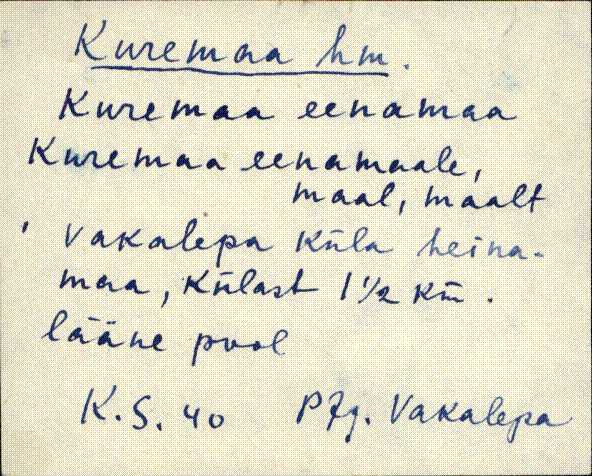 Kuremaa hm.
Kuremaa eenamaa
Kuremaa eenamaale,
maal, maalt
, Vakalepa küla heina-
maa, külast 1 1/2 km.
lääne pool
K.S. 40 PJg. Vakalepa